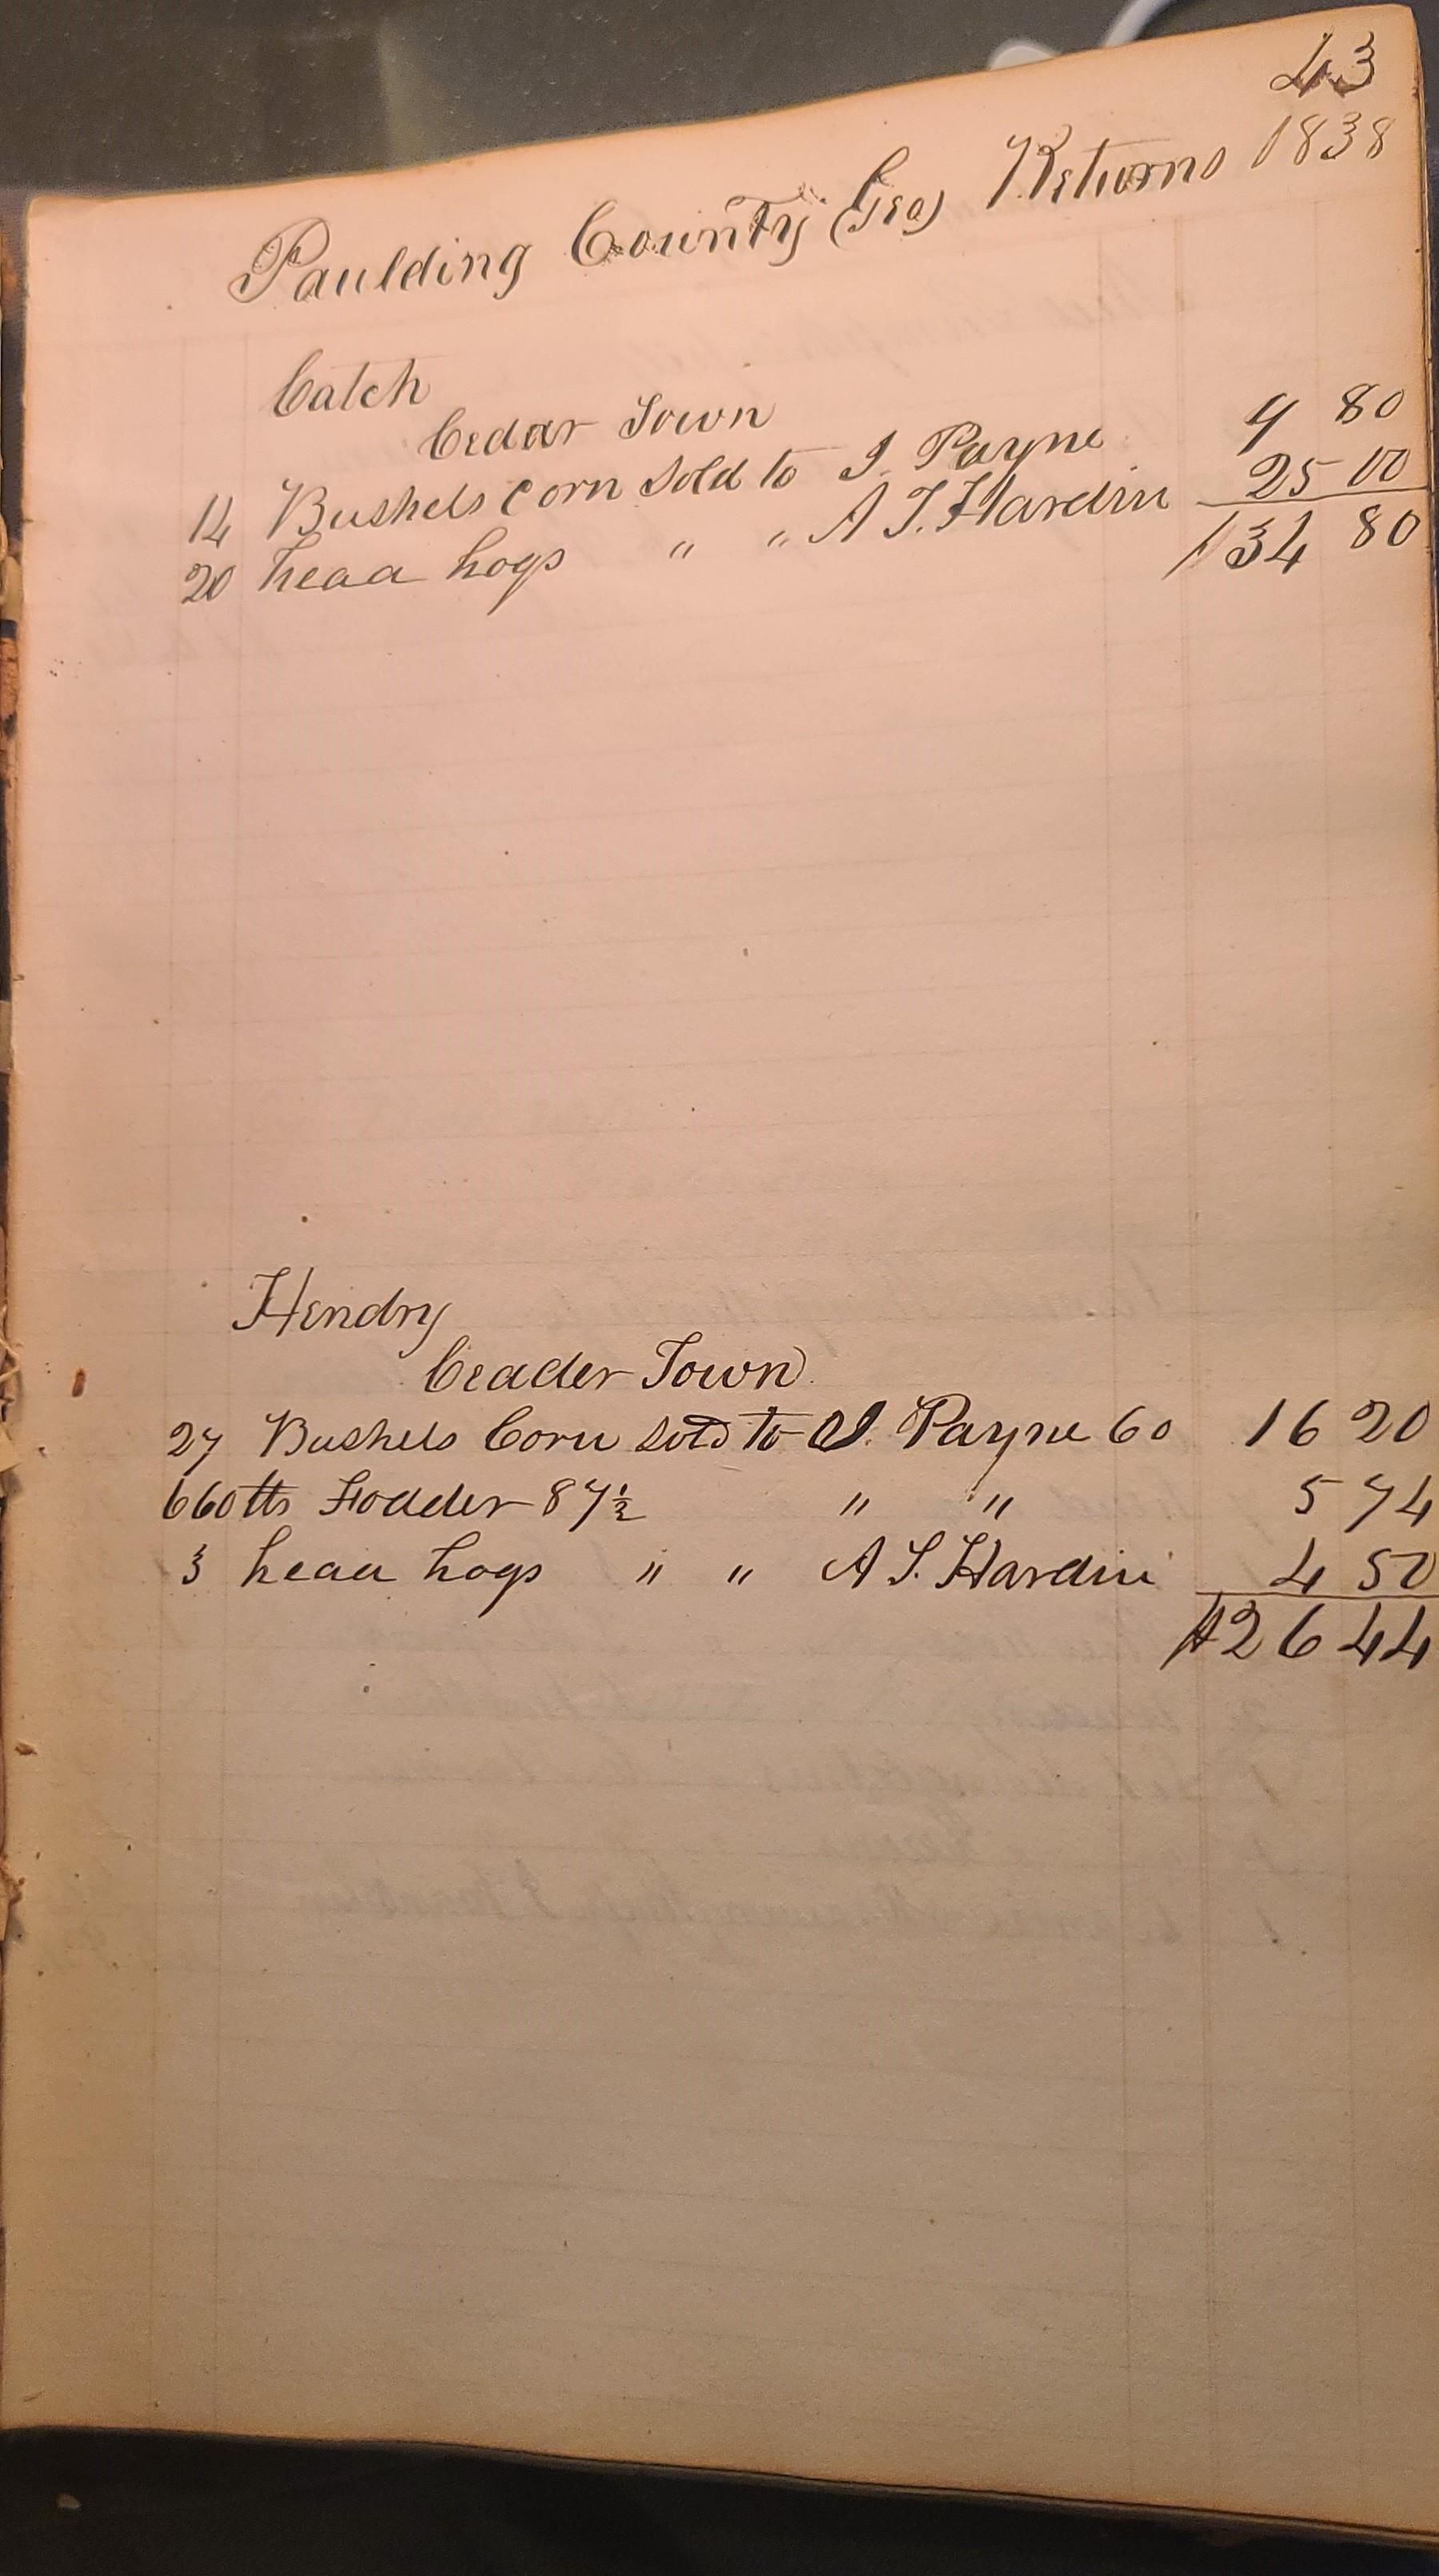 43
Paulding County (Geo) Returns 1838
Catch
Cedar Town
14 Bushels Corn sold to J. Payne 9 80
20 head hogs " " A T. Hardin 25 00
$34 80
Hendry
Ceader Town
27 Bushels Corn sold to J. Payne 60 16 20
660 lbs Fodder 87½ " " 5 74
3 head hogs " " A T. Hardin 4 50
$26 44